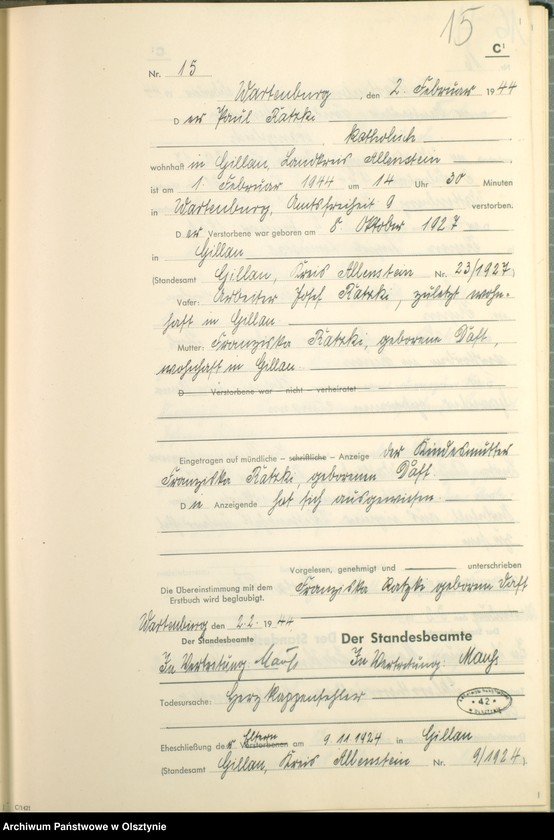 15
C¹
Nr. 15
Wartenburg, den 2. Februar 1944
Der Paul Ratzki
katholisch
wohnhaft in Gillau, Landkreis Allenstein
ist am 1. Februar 1944 um 14 Uhr 30 Minuten
in Wartenburg, Amtsfreiheit 9 verstorben.
Der Verstorbene war geboren am 8 Oktober 1927
in Gillau
(Standesamt Gillau, Kreis Allenstein Nr. 23/1927)
Vater: Arbeiter Josef Ratzki, zuletzt wohn-
haft in Gillau
Mutter: Franziska Ratzki, geborene Daft,
wohnhaft in Gillau.
D Verstorbene war – nicht – verheiratet
Eingetragen auf mündliche – schriftliche – Anzeige der Kindesmutter
Franziska Ratzki, geborenen Daft.
Die Anzeigende hat sich ausgewiesen.
Vorgelesen, genehmigt und unterschrieben
Die Übereinstimmung mit dem
Erstbuch wird beglaubigt.
Franziska Ratzki geborene Daft
Wartenburg den 2.2. 1944
Der Standesbeamte
Der Standesbeamte
In Vertretung:
In Vertretung:
Todesursache: Herzklappenfehler
Eheschließung der Eltern Verstorbenen am 9.11.1924 in Gillau
(Standesamt Gillau, Kreis Allenstein Nr. 9/1924)
42
C/1422
Archiwum Państwowe w Olsztynie